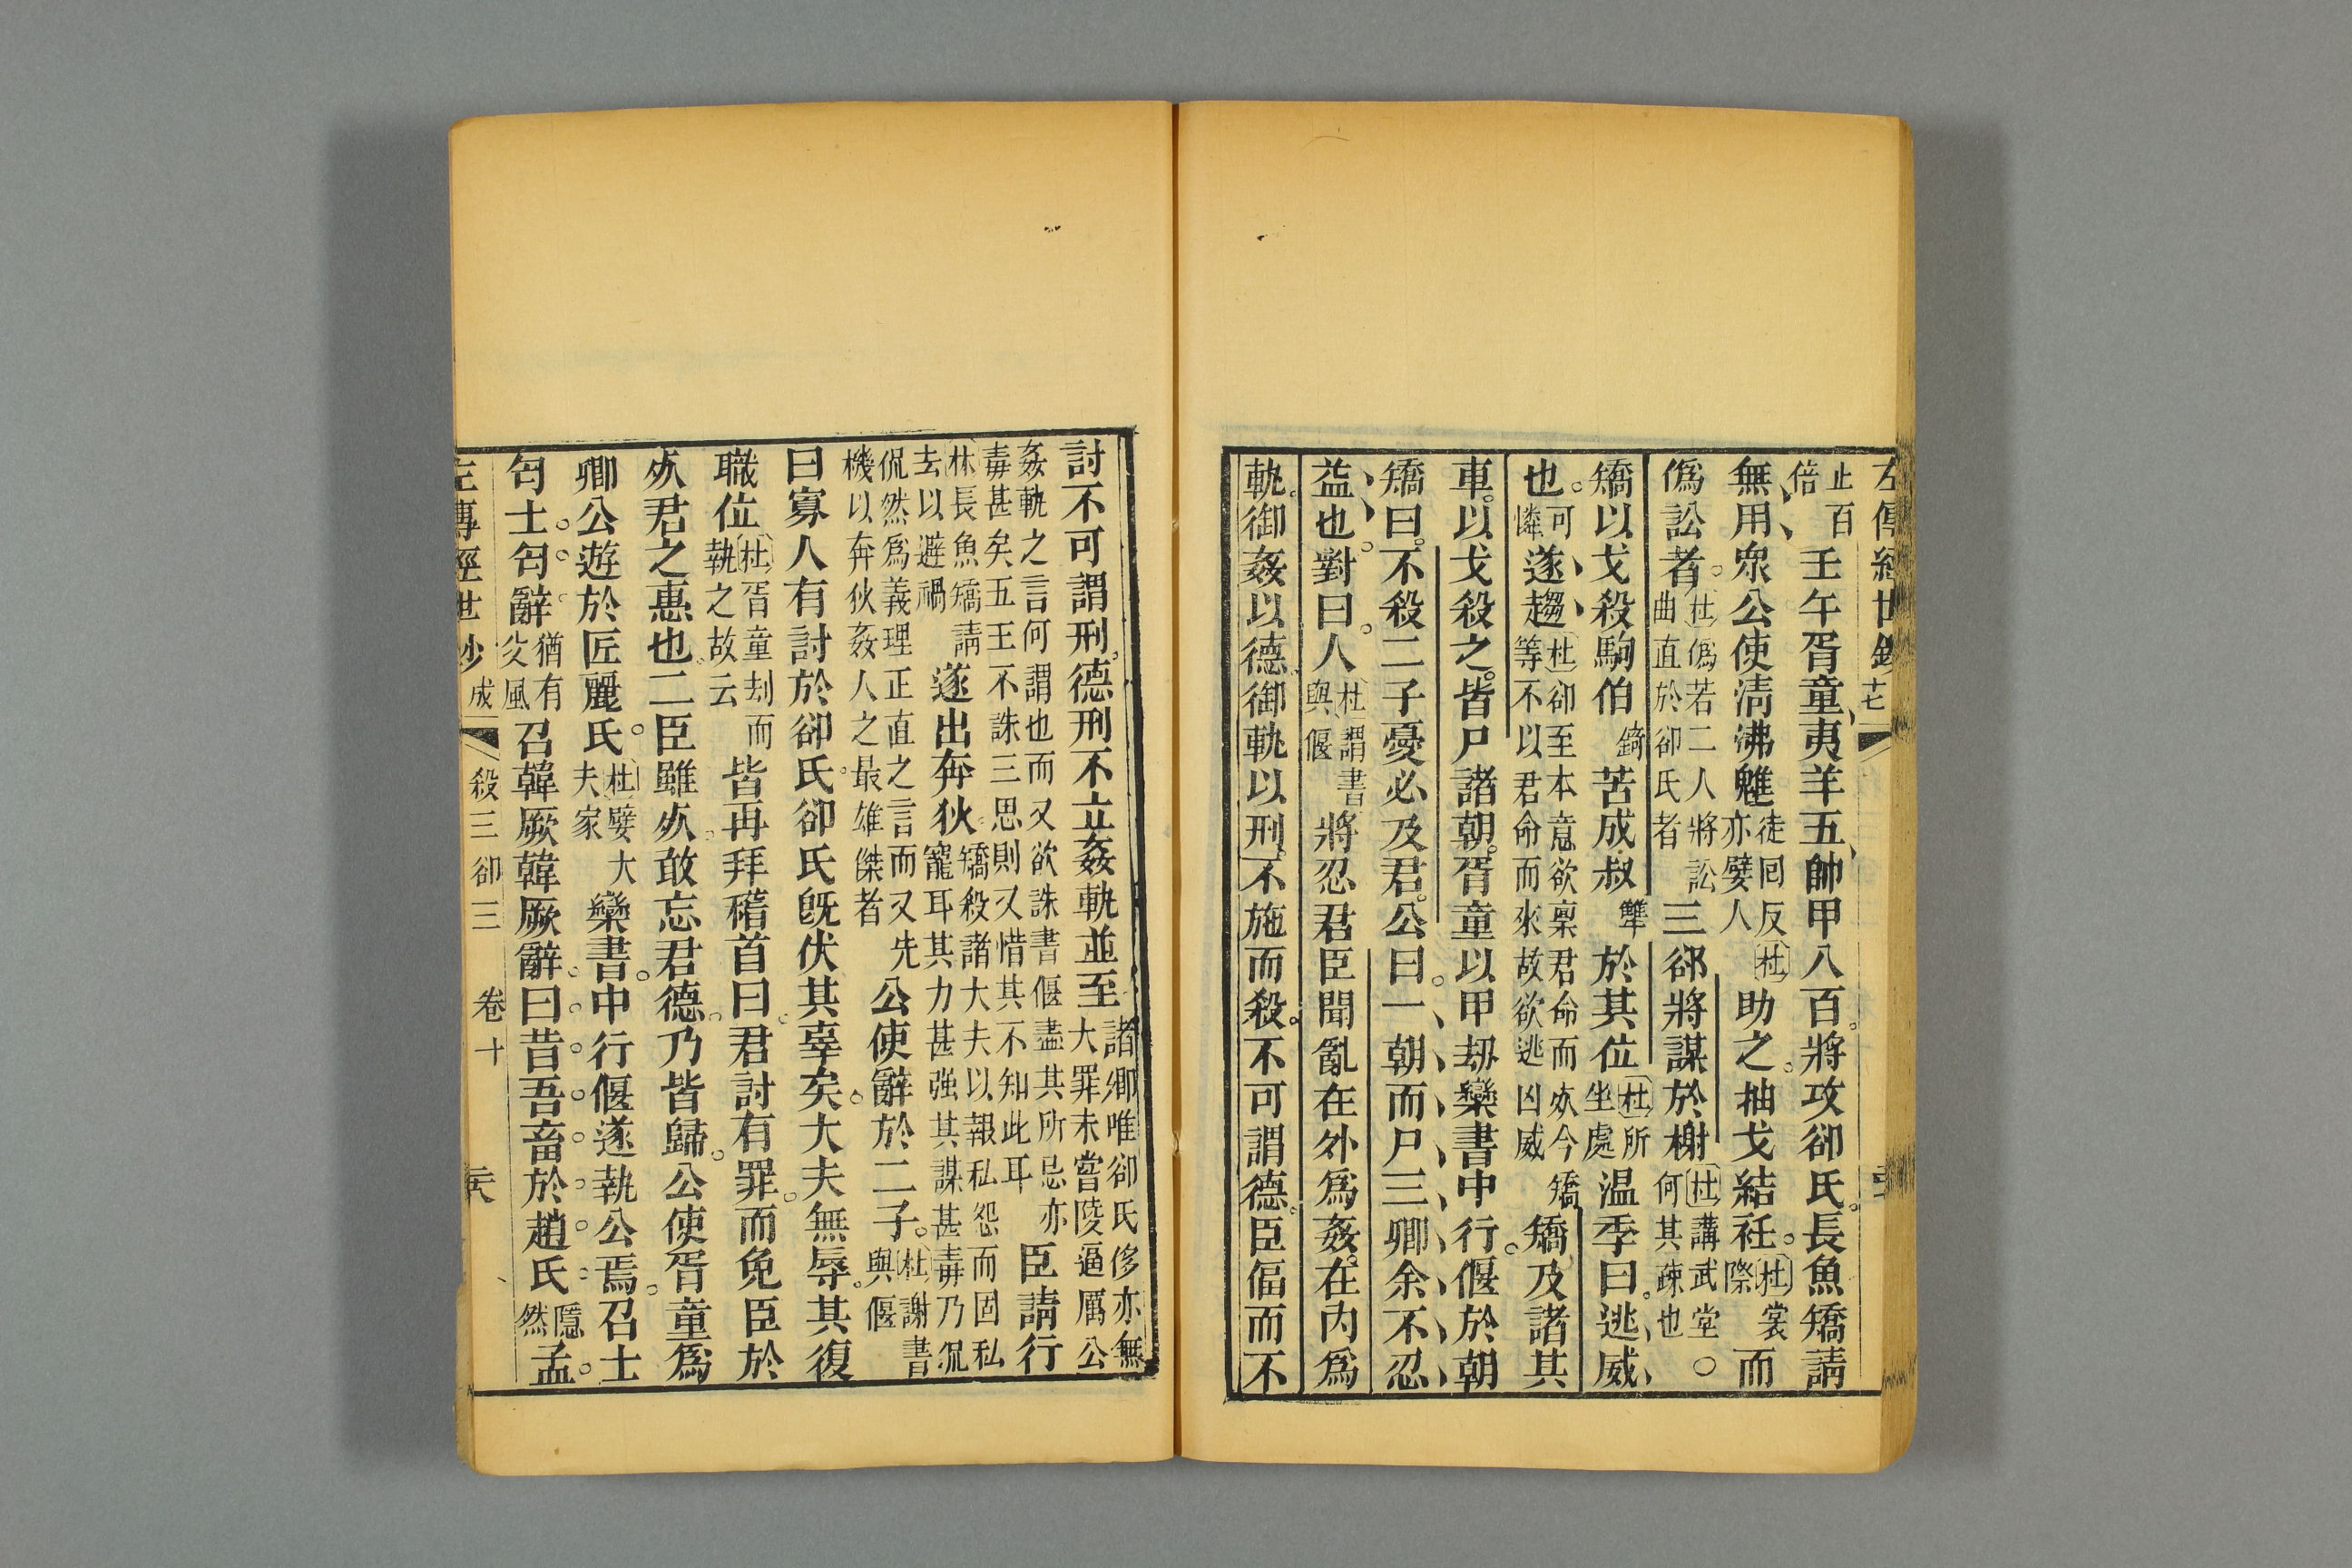 左傳經世鈔 十七
止百倍壬午胥童夷羊五帥甲八百將攻卻氏長魚矯請
無用衆公使清沸魋徒回反杜亦嬖人助之抽戈結衽杜裳際而
偽訟者杜偽若二人將訟曲直於卻氏者三郤將謀於榭杜講武堂○何其疎也
矯以戈殺駒伯錡苦成叔犨於其位杜所坐處温季曰逃威
也可憐遂趨杜卻至本意欲稟君命而死今矯等不以君命而來故欲逃凶威矯及諸其
車以戈殺之皆尸諸朝胥童以甲刼欒書中行偃於朝
矯曰不殺二子憂必及君公曰一朝而尸三卿余不忍
益也對曰人杜謂書與偃將忍君臣聞亂在外爲姦在内爲
軌御姦以德御軌以刑不施而殺不可謂德臣偪而不
討不可謂刑德刑不立姦軌並至諸卿唯卻氏侈亦無大罪未嘗陵逼厲公
姦軌之言何謂也而又欲誅書偃盡其所忌亦毒甚矣五王不誅三思則又惜其不知此耳臣請行
林長魚矯請去以避禍遂出奔狄矯殺諸大夫以報私怨而固私寵耳其力甚强其謀甚毒乃侃
侃然爲義理正直之言而又先機以奔狄姦人之最雄傑者公使辭於二子杜謝書與偃
曰寡人有討於卻氏卻氏旣伏其辜矣大夫無辱其復
職位杜胥童刦而執之故云皆再拜稽首曰君討有罪而免臣於
死君之惠也二臣雖死敢忘君德乃皆歸公使胥童爲
卿公遊於匠麗氏杜嬖大夫家欒書中行偃遂執公焉召士
匄士匄辭猶有父風召韓厥韓厥辭曰昔吾畜於趙氏隱然孟
左傳經世鈔 成 殺三卻三 卷十